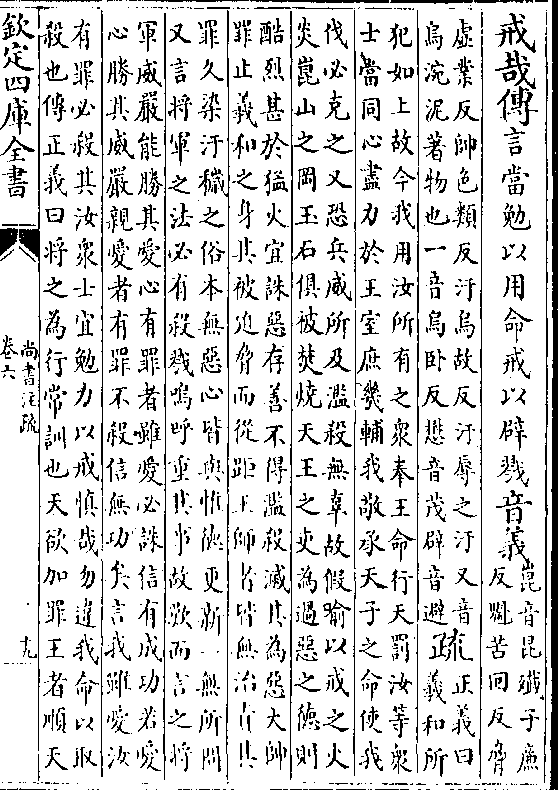 戒哉傳言當勉以用命戒以辟戮音義崑音昆殲子廉
反魁苦回反脅
虛業反帥色類反汙烏故反汙辱之汙又音
烏涴泥著物也一音烏卧反懋音茂辟音避疏正義曰
羲和所
犯如上故今我用汝所有之衆奉王命行天罰汝等衆
士當同心盡力於王室庶幾輔我敬承天子之命使我
伐必克之又恐兵威所及濫殺無辜故假喻以戒之火
炎崑山之岡玉石俱被焚燒天王之吏為過惡之德則
酷烈甚於猛火宜誅惡存善不得濫殺滅其為惡大帥
罪止羲和之身其被迫脅而從距王師者皆無治責其
罪久染汙穢之俗本無惡心皆與惟德更新一無所問
又言將軍之法必有殺戮嗚呼重其事故歎而言之將
軍威嚴能勝其愛心有罪者雖愛必誅信有成功若愛
心勝其威嚴親愛者有罪不殺信無功矣言我雖愛汝
有罪必殺其汝衆士宜勉力以戒慎哉勿違我命以取
殺也傳正義曰將之為行常訓也天欲加罪王者順天
欽定四庫全書
尚書注疏
卷六
十九